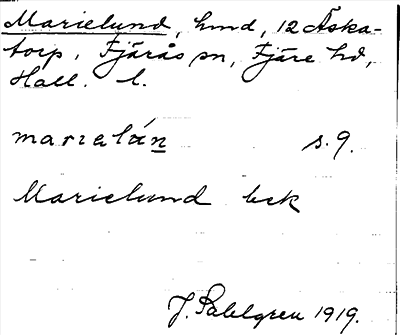 Marielund, hmd, 12 Äska-
torp, Fjärås sn, Fjäre hd,
Hall. l.
marıəlún s. 9.
Marielund bek
J. Sahlgren 1919.